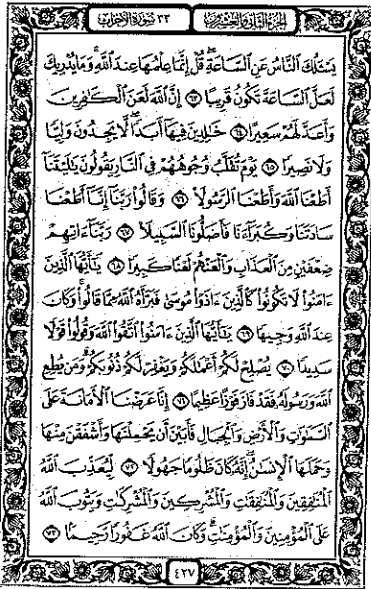 الجزء الثاني والعشرون
٣٣ سورة الأحزاب
يَسْـَٔلُكَ ٱلنَّاسُ عَنِ ٱلسَّاعَةِۖ قُلْ إِنَّمَا عِلْمُهَا عِندَ ٱللَّهِۚ وَمَا يُدْرِيكَ
لَعَلَّ ٱلسَّاعَةَ تَكُونُ قَرِيبًا ٦٣ إِنَّ ٱللَّهَ لَعَنَ ٱلْكَـٰفِرِينَ
وَأَعَدَّ لَهُمْ سَعِيرًا ٦٤ خَـٰلِدِينَ فِيهَآ أَبَدًاۖ لَّا يَجِدُونَ وَلِيًّا
وَلَا نَصِيرًا ٦٥ يَوْمَ تُقَلَّبُ وُجُوهُهُمْ فِى ٱلنَّارِ يَقُولُونَ يَـٰلَيْتَنَآ
أَطَعْنَا ٱللَّهَ وَأَطَعْنَا ٱلرَّسُولَا۠ ٦٦ وَقَالُوا۟ رَبَّنَآ إِنَّآ أَطَعْنَا
سَادَتَنَا وَكُبَرَآءَنَا فَأَضَلُّونَا ٱلسَّبِيلَا۠ ٦٧ رَبَّنَآ ءَاتِهِمْ
ضِعْفَيْنِ مِنَ ٱلْعَذَابِ وَٱلْعَنْهُمْ لَعْنًا كَبِيرًا ٦٨ يَـٰٓأَيُّهَا ٱلَّذِينَ
ءَامَنُوا۟ لَا تَكُونُوا۟ كَٱلَّذِينَ ءَاذَوْا۟ مُوسَىٰ فَبَرَّأَهُ ٱللَّهُ مِمَّا قَالُوا۟ۚ وَكَانَ
عِندَ ٱللَّهِ وَجِيهًا ٦٩ يَـٰٓأَيُّهَا ٱلَّذِينَ ءَامَنُوا۟ ٱتَّقُوا۟ ٱللَّهَ وَقُولُوا۟ قَوْلًا
سَدِيدًا ٧٠ يُصْلِحْ لَكُمْ أَعْمَـٰلَكُمْ وَيَغْفِرْ لَكُمْ ذُنُوبَكُمْۗ وَمَن يُطِعِ
ٱللَّهَ وَرَسُولَهُۥ فَقَدْ فَازَ فَوْزًا عَظِيمًا ٧١ إِنَّا عَرَضْنَا ٱلْأَمَانَةَ عَلَى
ٱلسَّمَـٰوَٰتِ وَٱلْأَرْضِ وَٱلْجِبَالِ فَأَبَيْنَ أَن يَحْمِلْنَهَا وَأَشْفَقْنَ مِنْهَا
وَحَمَلَهَا ٱلْإِنسَـٰنُۖ إِنَّهُۥ كَانَ ظَلُومًا جَهُولًا ٧٢ لِّيُعَذِّبَ ٱللَّهُ
ٱلْمُنَـٰفِقِينَ وَٱلْمُنَـٰفِقَـٰتِ وَٱلْمُشْرِكِينَ وَٱلْمُشْرِكَـٰتِ وَيَتُوبَ ٱللَّهُ
عَلَى ٱلْمُؤْمِنِينَ وَٱلْمُؤْمِنَـٰتِۗ وَكَانَ ٱللَّهُ غَفُورًا رَّحِيمًا ٧٣
٤٢٧